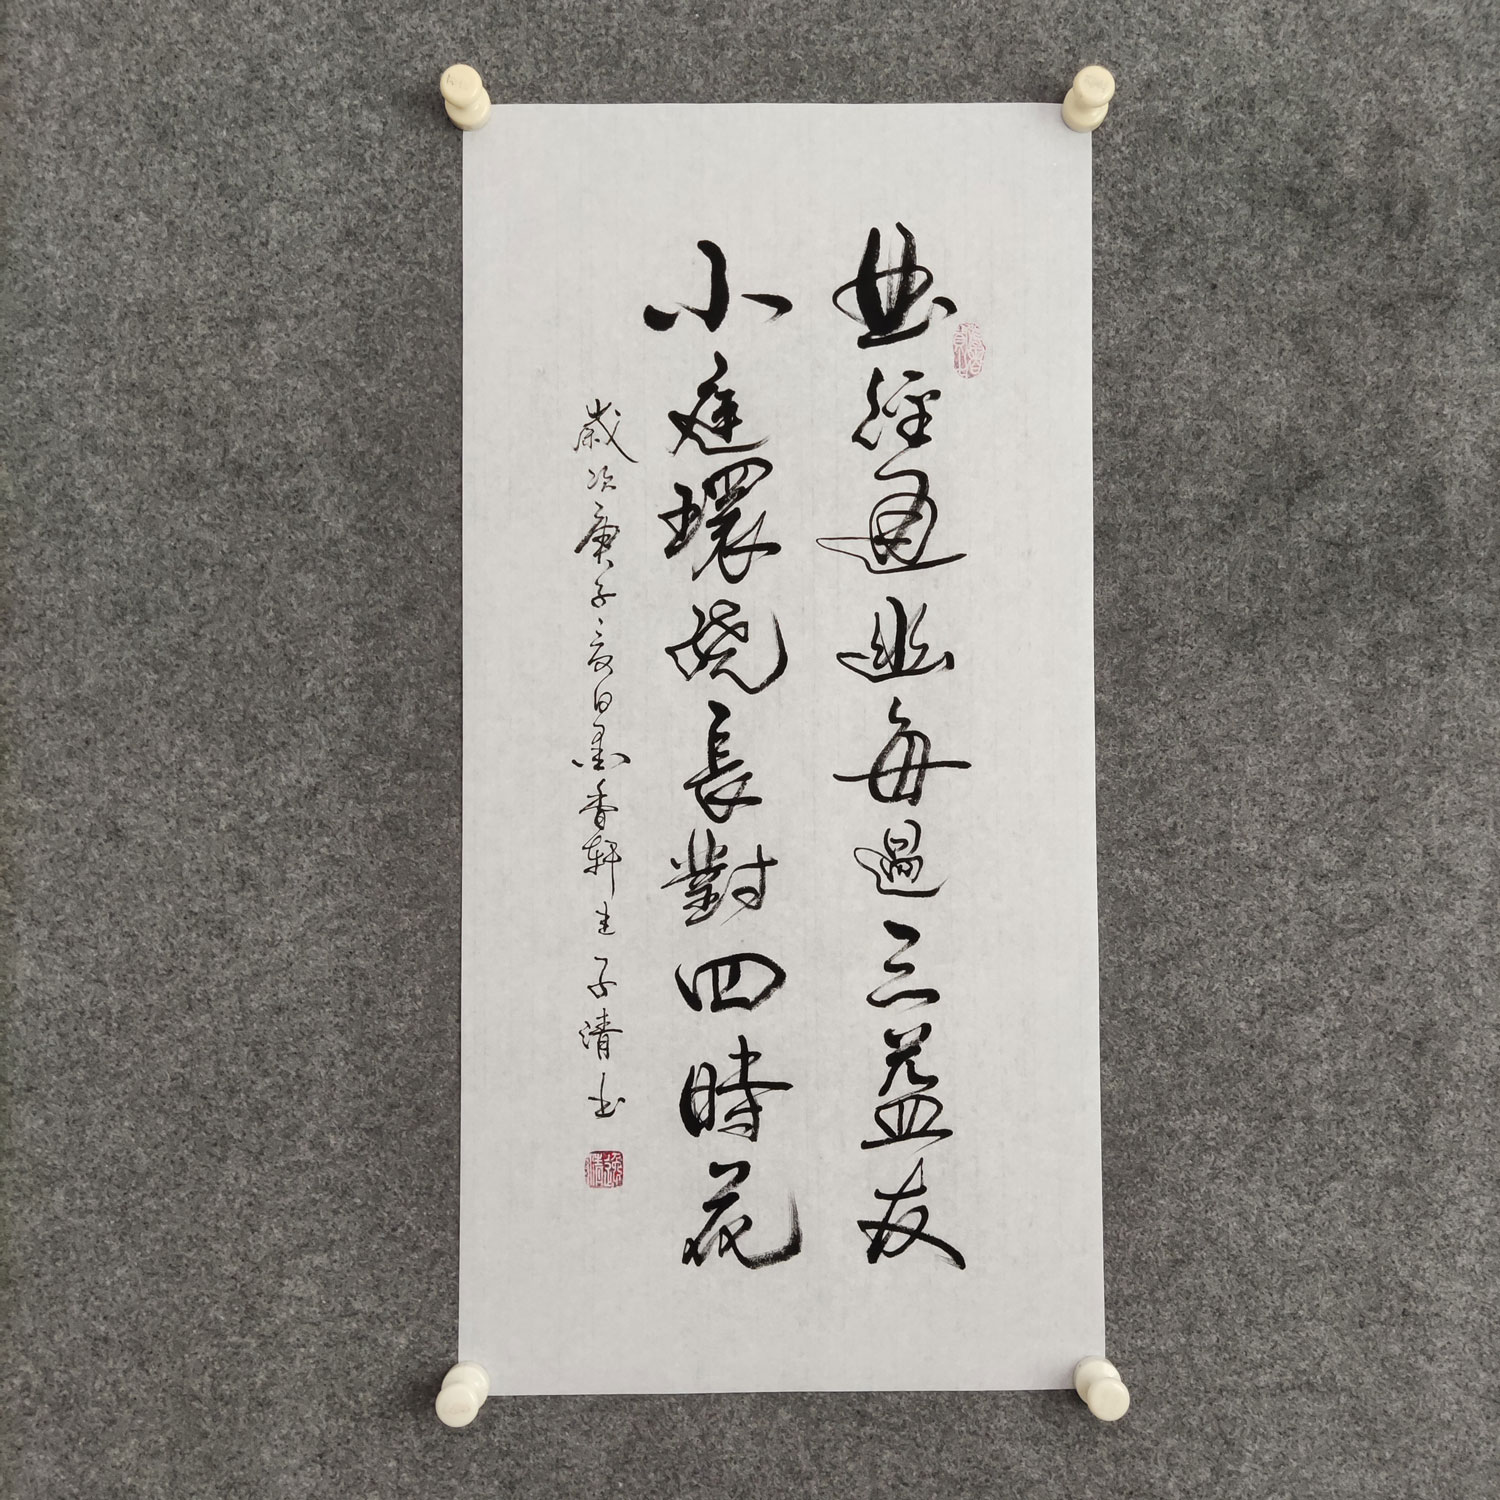 曲徑通幽每過三益友
小庭環繞長對四時花
歲次庚子夏日墨香軒主子清书